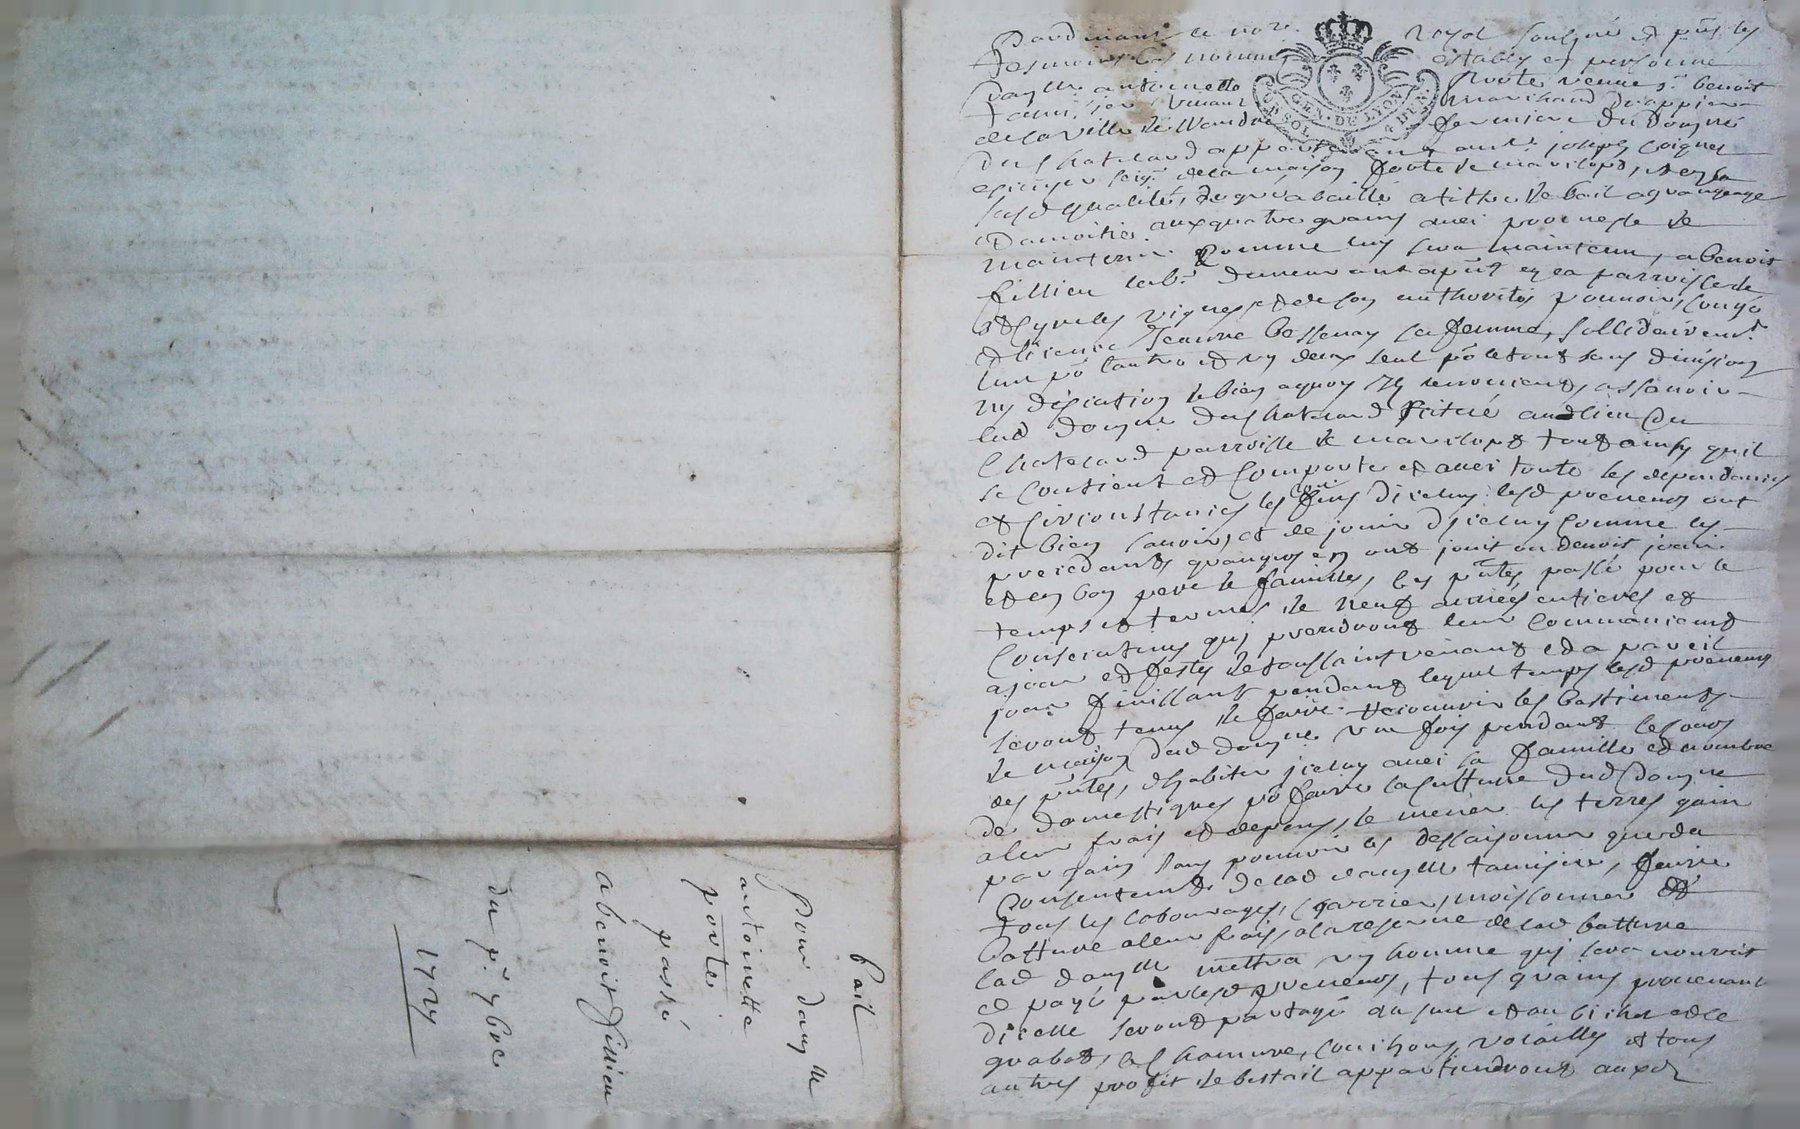 Pardevant le not. royal soussigné et pnts les
tesmoins bas nommés establys en personne
Dayelle antoinette Porte veuve sr. benoit
tamisier vivant marchand drappier
de la ville de fermiere du Domené
du Chatelard appartenant a mre. joseph
escuyer seigr. de la maison forte de marcilond, et en la
susd qualité, de gré a baillé a tiltre de bail a grangeage
Damoitié aux quatre grains avec promesse de
maintenir Comme luy sera maintenu, a benoist
fillieu lab.r demeurant a pnt en la parroisse de
St Cyr les vignes et de son authorités pouvoir, congé
et licence Jeanne bessenay sa femme, sollidairement
lun po lautre et un deux seul po le tout sans division
ny discution de bien a quoy Ilz renonciens, assavoir
led domene du Chatelard scitué aud lieu du
Chatelard parroisse de marcilond tout ainsy quil
se Contient et Comporte et avec toute les dependances
et circonstances les fins dicelluy lesd preneurs ont
dit bien savoir, et de jouir dicelluy Comme les
precedants grangers en ont jouit ou devoit jouir
et en bon pere de famille, les pntes passé pour le
temps et termes de neuf années entieres et
Consecutives qui prendront leur Commancement
a jour et feste de toussaints venant et a pareil
jour finissants pendant lequel temps lesd preneurs
seront tenus de faire recouvrir les bastiments
de maison dud domene une fois pendant le cours
des pntes, dhabiter icelluy avec sa famille et nombre
de domestiques po faire la culture dud Domene
a leur frais et depens, de mener les terres gain
par gain sans pouvoir les dessaisonner que du
Consentement de lad dayelle tamisier, faire
tous les labourages, charrier, moissonner et
batture a leur frais, a la reserve de lad batture
lad dayelle mettra un homme qui sera nourrit
et payé par lesd preneurs, tous grains provenant
dicelle seront partagé au sac et au bichet et le
grabot, et Chanvre, Cuchons, volailles et tous
autres profit de bestail appartiendront auxd
GEN. DE LYON
UN SOL 4 DEN.
Bail
Pour dayelle
antoinette
porte
passé
a benoit fillieu
du pr. 9bre
1727